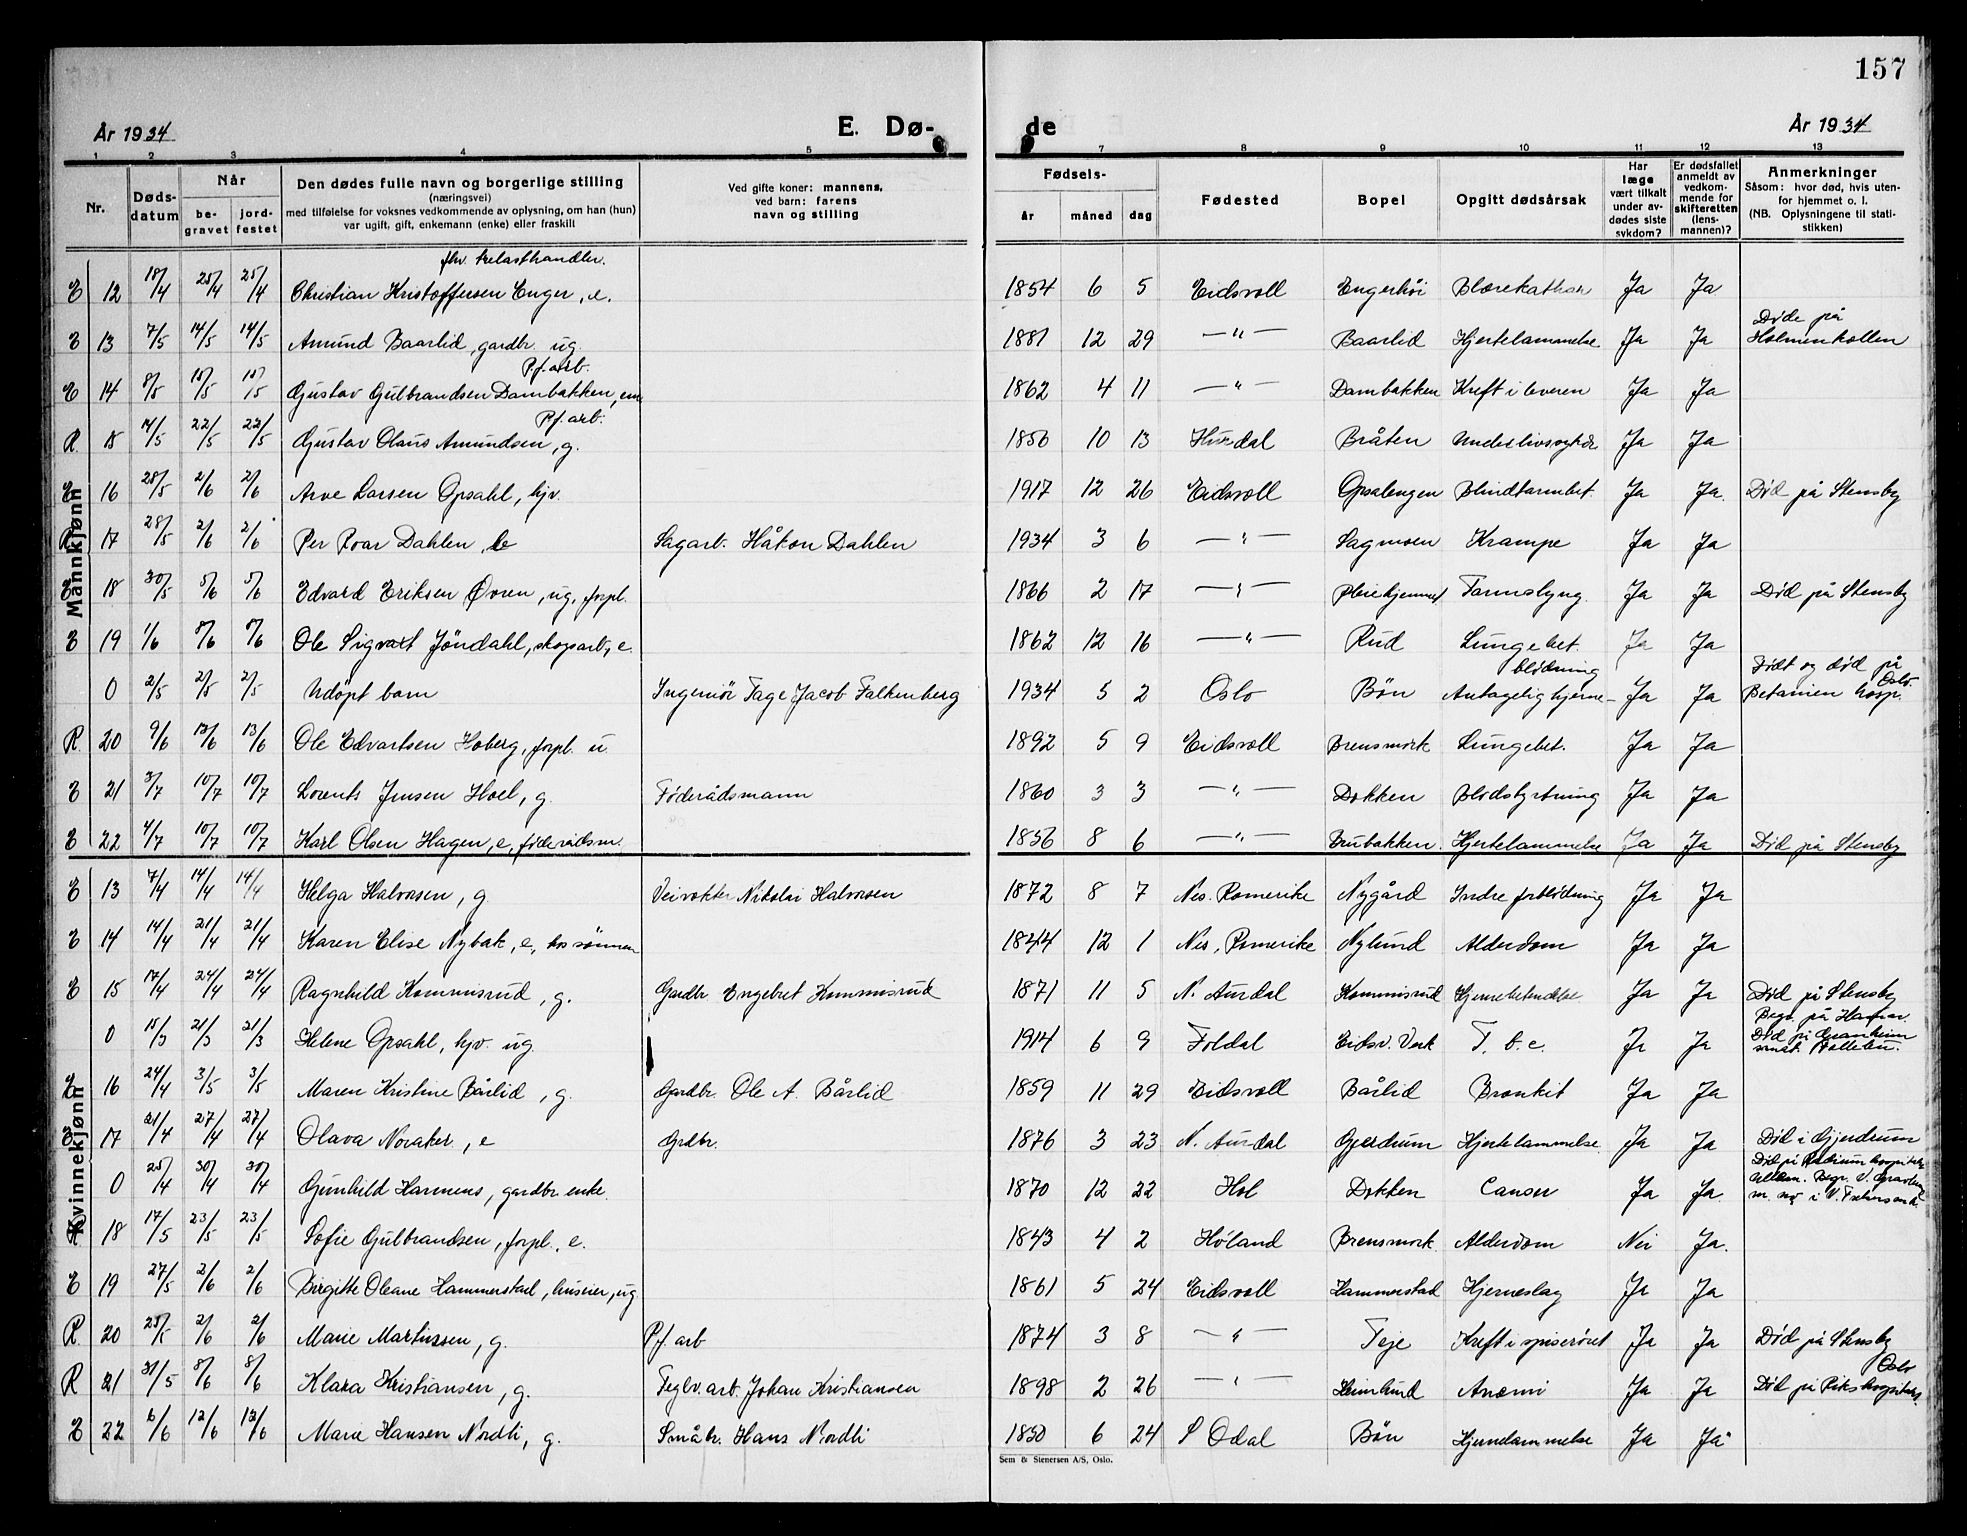 157
År 1934 E. Dø- de År 1934
1 2 3 4 5 7 8 9 10 11 12 13
Nr. Døds-datum Når be-gravet jord-festet Den dødes fulle navn og borgerlige stilling (næringsvei) med tilføielse for voksnes vedkommende av oplysning, om han (hun) var ugift, gift, enkemann (enke) eller fraskilt Ved gifte koner: mannens, ved barn: farens navn og stilling Fødsels- år måned dag Fødested Bopel Opgitt dødsårsak Har læge vært tilkalt under av-dødes siste sykdom? Er dødsfallet anmeldt av vedkom-mende for skifteretten (lens-mannen)? Anmerkninger Såsom: hvor død, hvis uten-for hjemmet o. l. (NB. Oplysningene til stati-stikken)
Mannkjønn
fhv. trelasthandler.
E 12 18/4 25/4 25/4 Christian Kristoffersen Enger, e. 1854 6 5 Eidsvoll Engerhøi Blærekatharr Ja Ja
E 13 7/5 14/5 14/5 Amund Baarlid, gardbr. ug. 1881 12 29 —"— Baarlid Hjertelammelse Ja Ja Døde på Holmenkollen
Pf. arb.
E 14 8/5 15/5 15/5 Gustav Gulbrandsen Dambakken, em 1862 4 11 —"— Dambakken Kreft i leveren Ja Ja
Pf. arb.
R 15 22/5 22/5 Gustav Olaus Amundsen, g. 1856 10 13 Hurdal Bråten Underlivssykdo Ja Ja
E 16 28/5 2/6 2/6 Arve Larsen Opsahl, hjv. 1917 12 26 Eidsvoll Opsalengen Blindtarmbet. Ja Ja. Død på Stensby
R 17 28/5 2/6 2/6 Per Roar Dahlen, b Sagarb. Håkon Dahlen 1934 3 6 —"— Sagmoen Krampe Ja Ja
E 18 30/5 5/6 5/6 Edvard Eriksen Øvren, ug, forpl. 1866 2 17 —"— Pleiehjemmet Tarmslyng. Ja Ja Død på Stensby
E 19 1/6 8/6 8/6 Ole Sigvart Jøndahl, skogsarb, e. 1862 12 16 —"— Rud Lungebet. Ja Ja
0 2/5 2/5 2/5 Udøpt barn Ingeniør Tage Jacob Falkenberg 1934 5 2 Oslo Bøn Antagelig hjerne-blødning Ja Ja Født og død på Betanien hosp. Oslo.
R 20 9/6 13/6 13/6 Ole Edvartsen Hoberg, forpl. u. 1892 5 9 Eidsvoll Brensmork Lungebet. Ja Ja
E 21 3/7 10/7 10/7 Lorents Jensen Hoel, g. Føderådsmann 1860 3 3 —"— Dokken Blodstyrtning Ja Ja
E 22 4/7 10/7 10/7 Karl Olsen Hagen, e, føderådsm. 1856 8 6 —"— Brubakken Hjertelammelse Ja Ja Død på Stensby
Kvinnekjønn
E 13 7/4 14/4 14/4 Helga Halvorsen, g Veivokter Nikolai Halvorsen 1872 8 7 Nes. Romerike Nygård Indre forblødning Ja Ja
E 14 14/4 21/4 21/4 Karen Elise Nybak, e, hos sønnen 1844 12 1 Nes, Romerike Nylund Alderdom Ja Ja
E 15 17/4 24/4 24/4 Ragnhild Kommisrud, g. Gardbr. Engebret Kommisrud 1871 11 5 N. Aurdal Kommisrud Hjernebetendelse Ja Ja Død på Stensby
0 15/3 21/3 21/3 Helene Opsahl, hjv. ug. 1914 6 9 Foldal Eidsv. Verk T. b. c. Ja Ja Begr. på Hamar Død på Granheim sanat. Follebu.
E 16 24/4 3/5 3/5 Maren Kristine Bårlid, g. Gardbr. Ole A. Bårlid 1859 11 29 Eidsvoll Bårlid Bronkit Ja Ja
E 17 21/4 27/4 27/4 Olava Noraker, e Grdbr. 1876 3 23 N. Aurdal Gjerdrum Hjertelammelse. Ja Ja Død i Gjerdrum
0 25/4 30/4 30/4 Gunhild Harmens, gardbr. enke. 1870 12 22 Hol Dokken Canser Ja Ja. Død på Radiumhospitalet
R 18 17/5 23/5 23/5 Sofie Gulbrandsen, forpl., e. 1843 4 2 Høland Brensmork. Alderdom Nei Ja.
E 19 27/5 2/6 2/6 Birgitte Oleane Hammerstad, huseier, ug 1861 5 24 Eidsvoll Hammerstad Hjerneslag Ja Ja
R 20 25/5 2/6 2/6 Marie Martinsen, g. Pf. arb 1874 3 8 —"— Teje Kreft i spiserøret Ja Ja Død på Stensby
R 21 31/5 8/6 8/6 Klara Kristiansen, g. Teglv. arb. Johan Kristiansen 1898 2 26 —"— Heimlund Anæmi Ja Ja Død på Rikshospitalet. Oslo
E 22 6/6 12/6 12/6 Marie Hansen Nordli, g. Småbr. Hans Nordli 1850 6 24 S Odal Bøn Hjernelammelse Ja Ja
Sem & Stenersen A/S, Oslo.